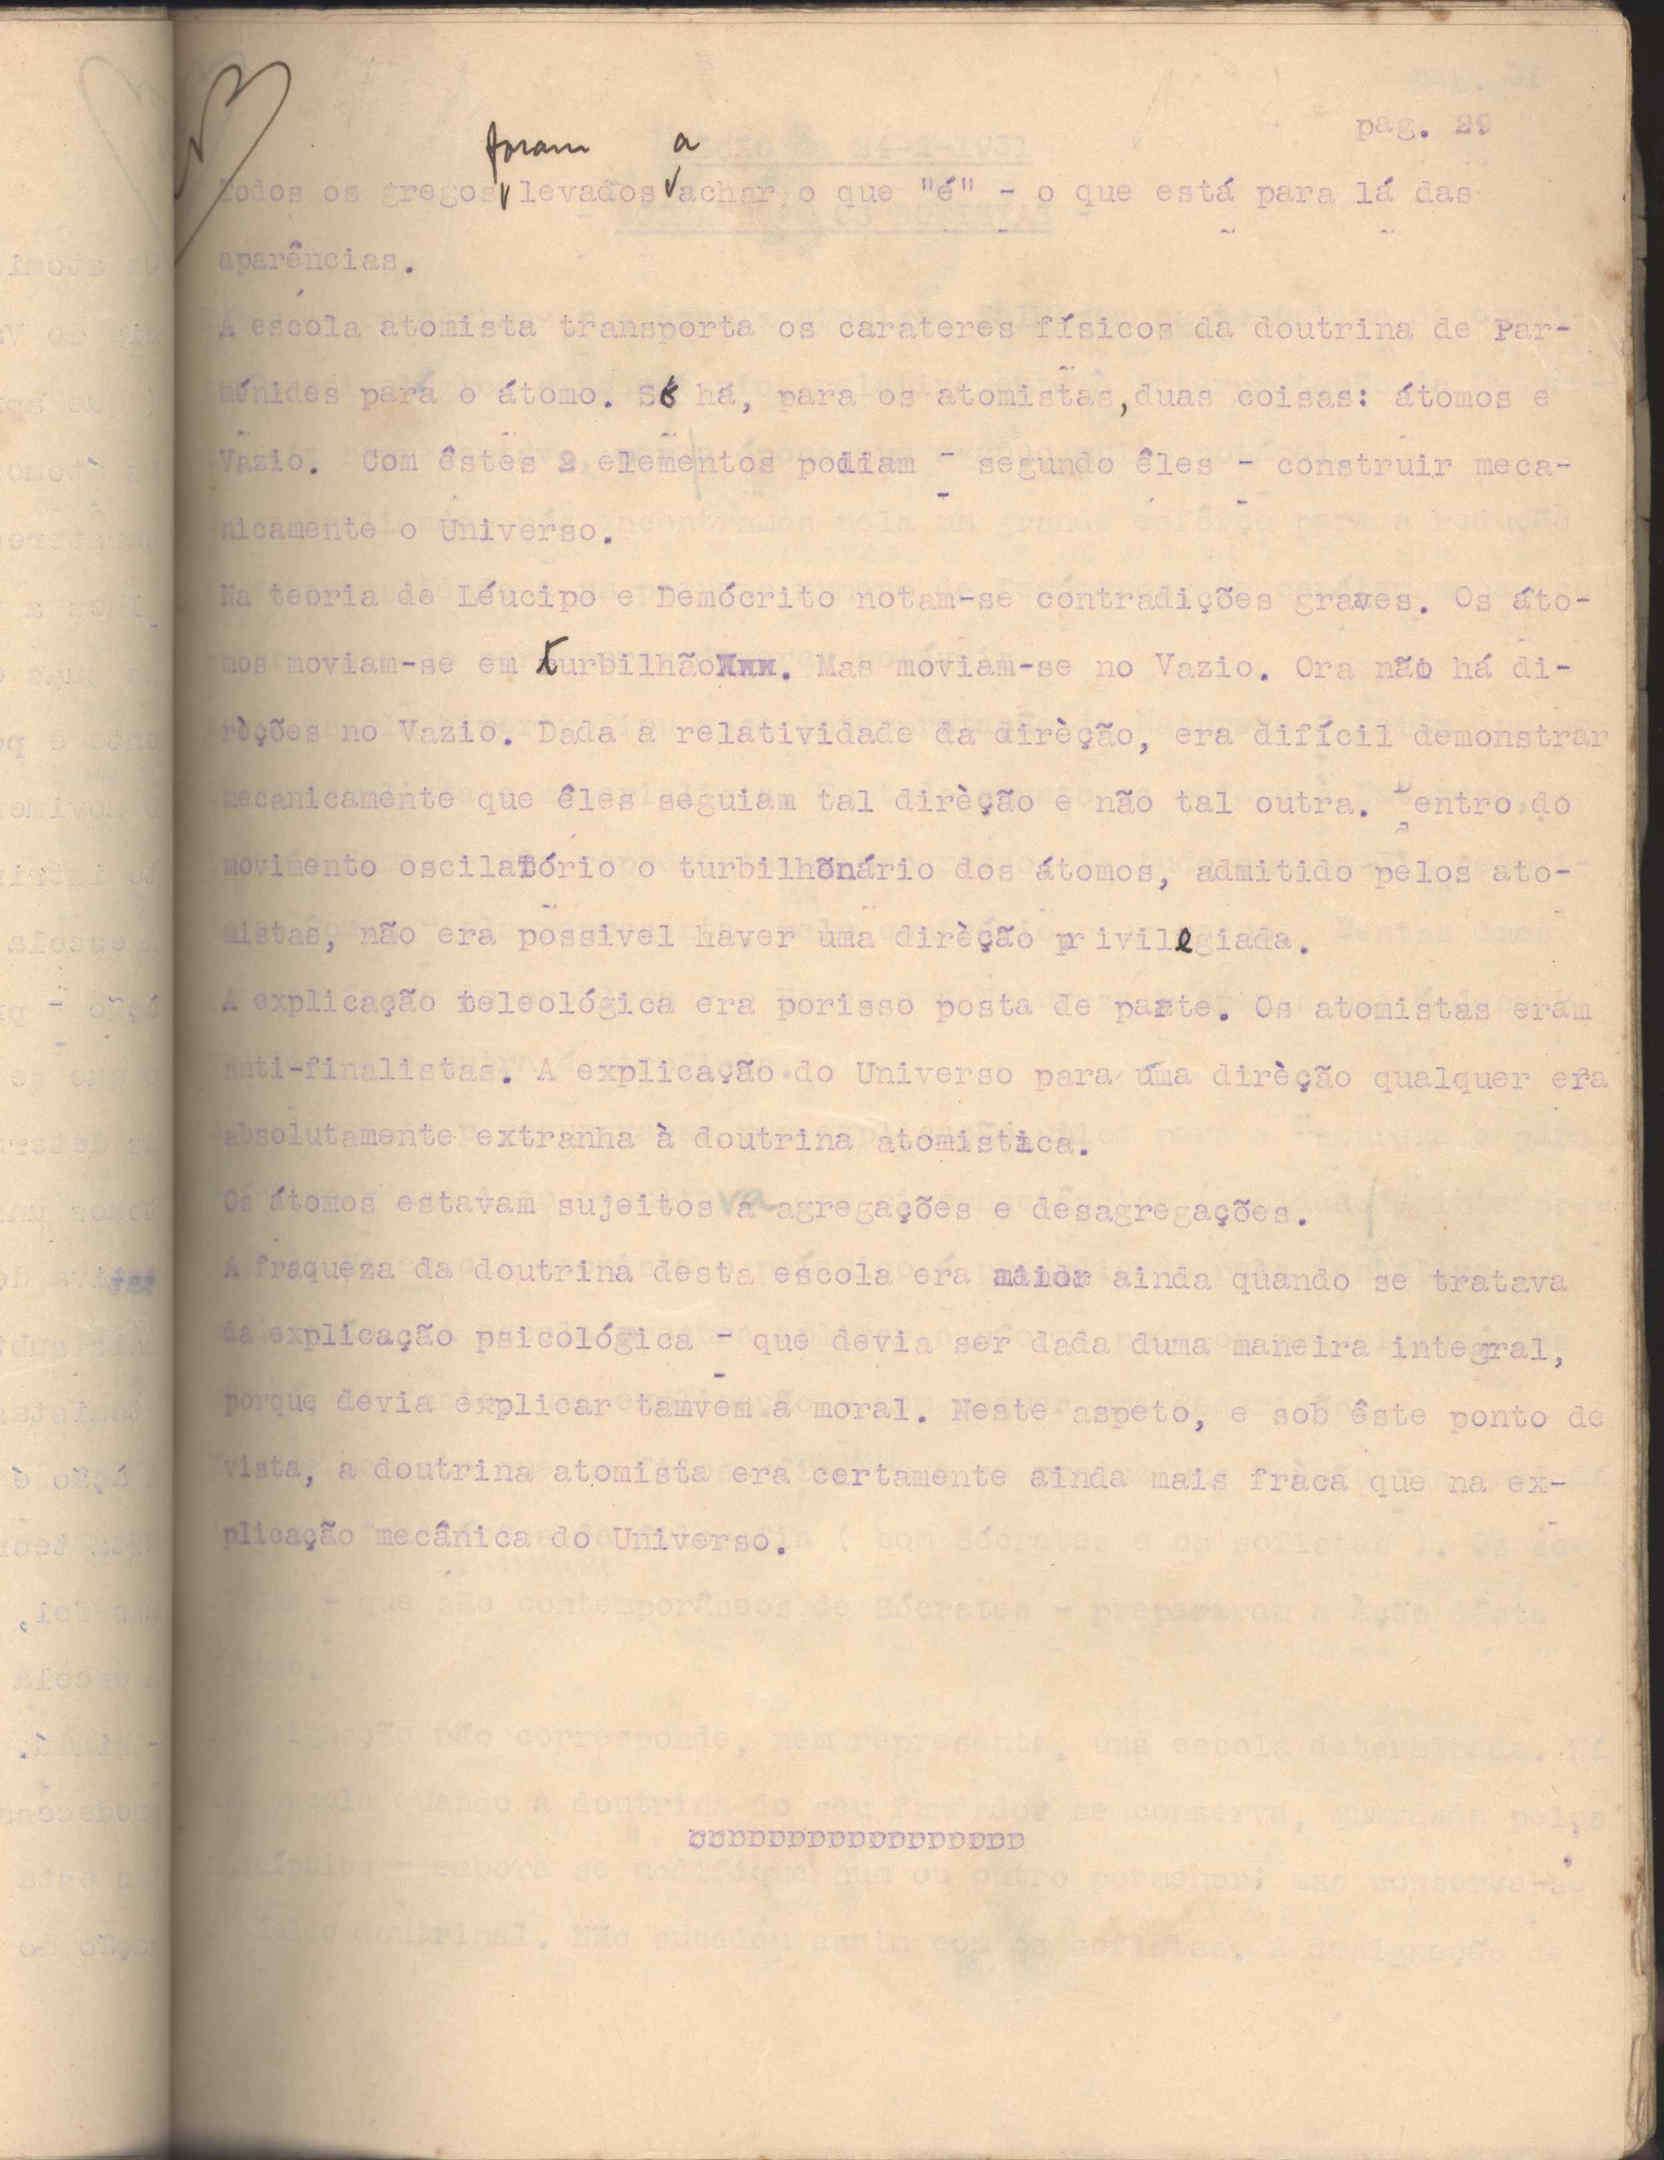 pag. 29
foram a
Todos os gregos levados achar o que "é" - o que está para lá das
aparências.
A escola atomista transporta os carateres físicos da doutrina de Par-
ménides para o átomo. Só há, para os atomistas, duas coisas: átomos e
Vazio. Com êstes 2 elementos podiam - segundo êles - construir meca-
nicamente o Universo.
Na teoria de Léucipo e Demócrito notam-se contradições graves. Os áto-
mos moviam-se em turbilhão. Mas moviam-se no Vazio. Ora não há di-
rèções no Vazio. Dada a relatividade da dirèção, era difícil demonstrar
mecanicamente que êles seguiam tal dirèção e não tal outra. Dentro do
movimento oscilatório o turbilhonário dos átomos, admitido pelos ato-
mistas, não era possivel haver uma dirèção privilegiada.
A explicação teleológica era porisso posta de parte. Os atomistas eram
anti-finalistas. A explicação do Universo para uma dirèção qualquer era
absolutamente extranha à doutrina atomistica.
Os átomos estavam sujeitos a agregações e desagregações.
A fraqueza da doutrina desta escola era maior ainda quando se tratava
da explicação psicológica - que devia ser dada duma maneira integral,
porque devia explicar tamvem a moral. Neste aspeto, e sob êste ponto de
vista, a doutrina atomista era certamente ainda mais fraca que na ex-
plicação mecânica do Universo.